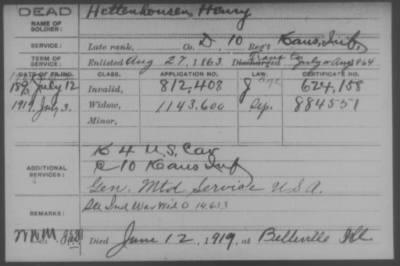 DEAD
NAME OF SOLDIER: Hettenhousen, Henry
SERVICE: Late rank, Co. D, 10 Reg't Kans. Inf.
TERM OF SERVICE: Enlisted Aug 27, 1863 Discharged July or Aug 1864
DATE OF FILING. CLASS. APPLICATION NO. LAW. CERTIFICATE NO.
July 12 Invalid, 812,408 624,158
1919, July 3. Widow, 1143,600 884551
Minor,
ADDITIONAL SERVICES:
K 4 U.S. Cav
C 10 Kans Inf
Gen. Mtd Service U.S.A.
REMARKS: See Ind War Wid O 14633
Died June 12, 1919, at Belleville Ill.